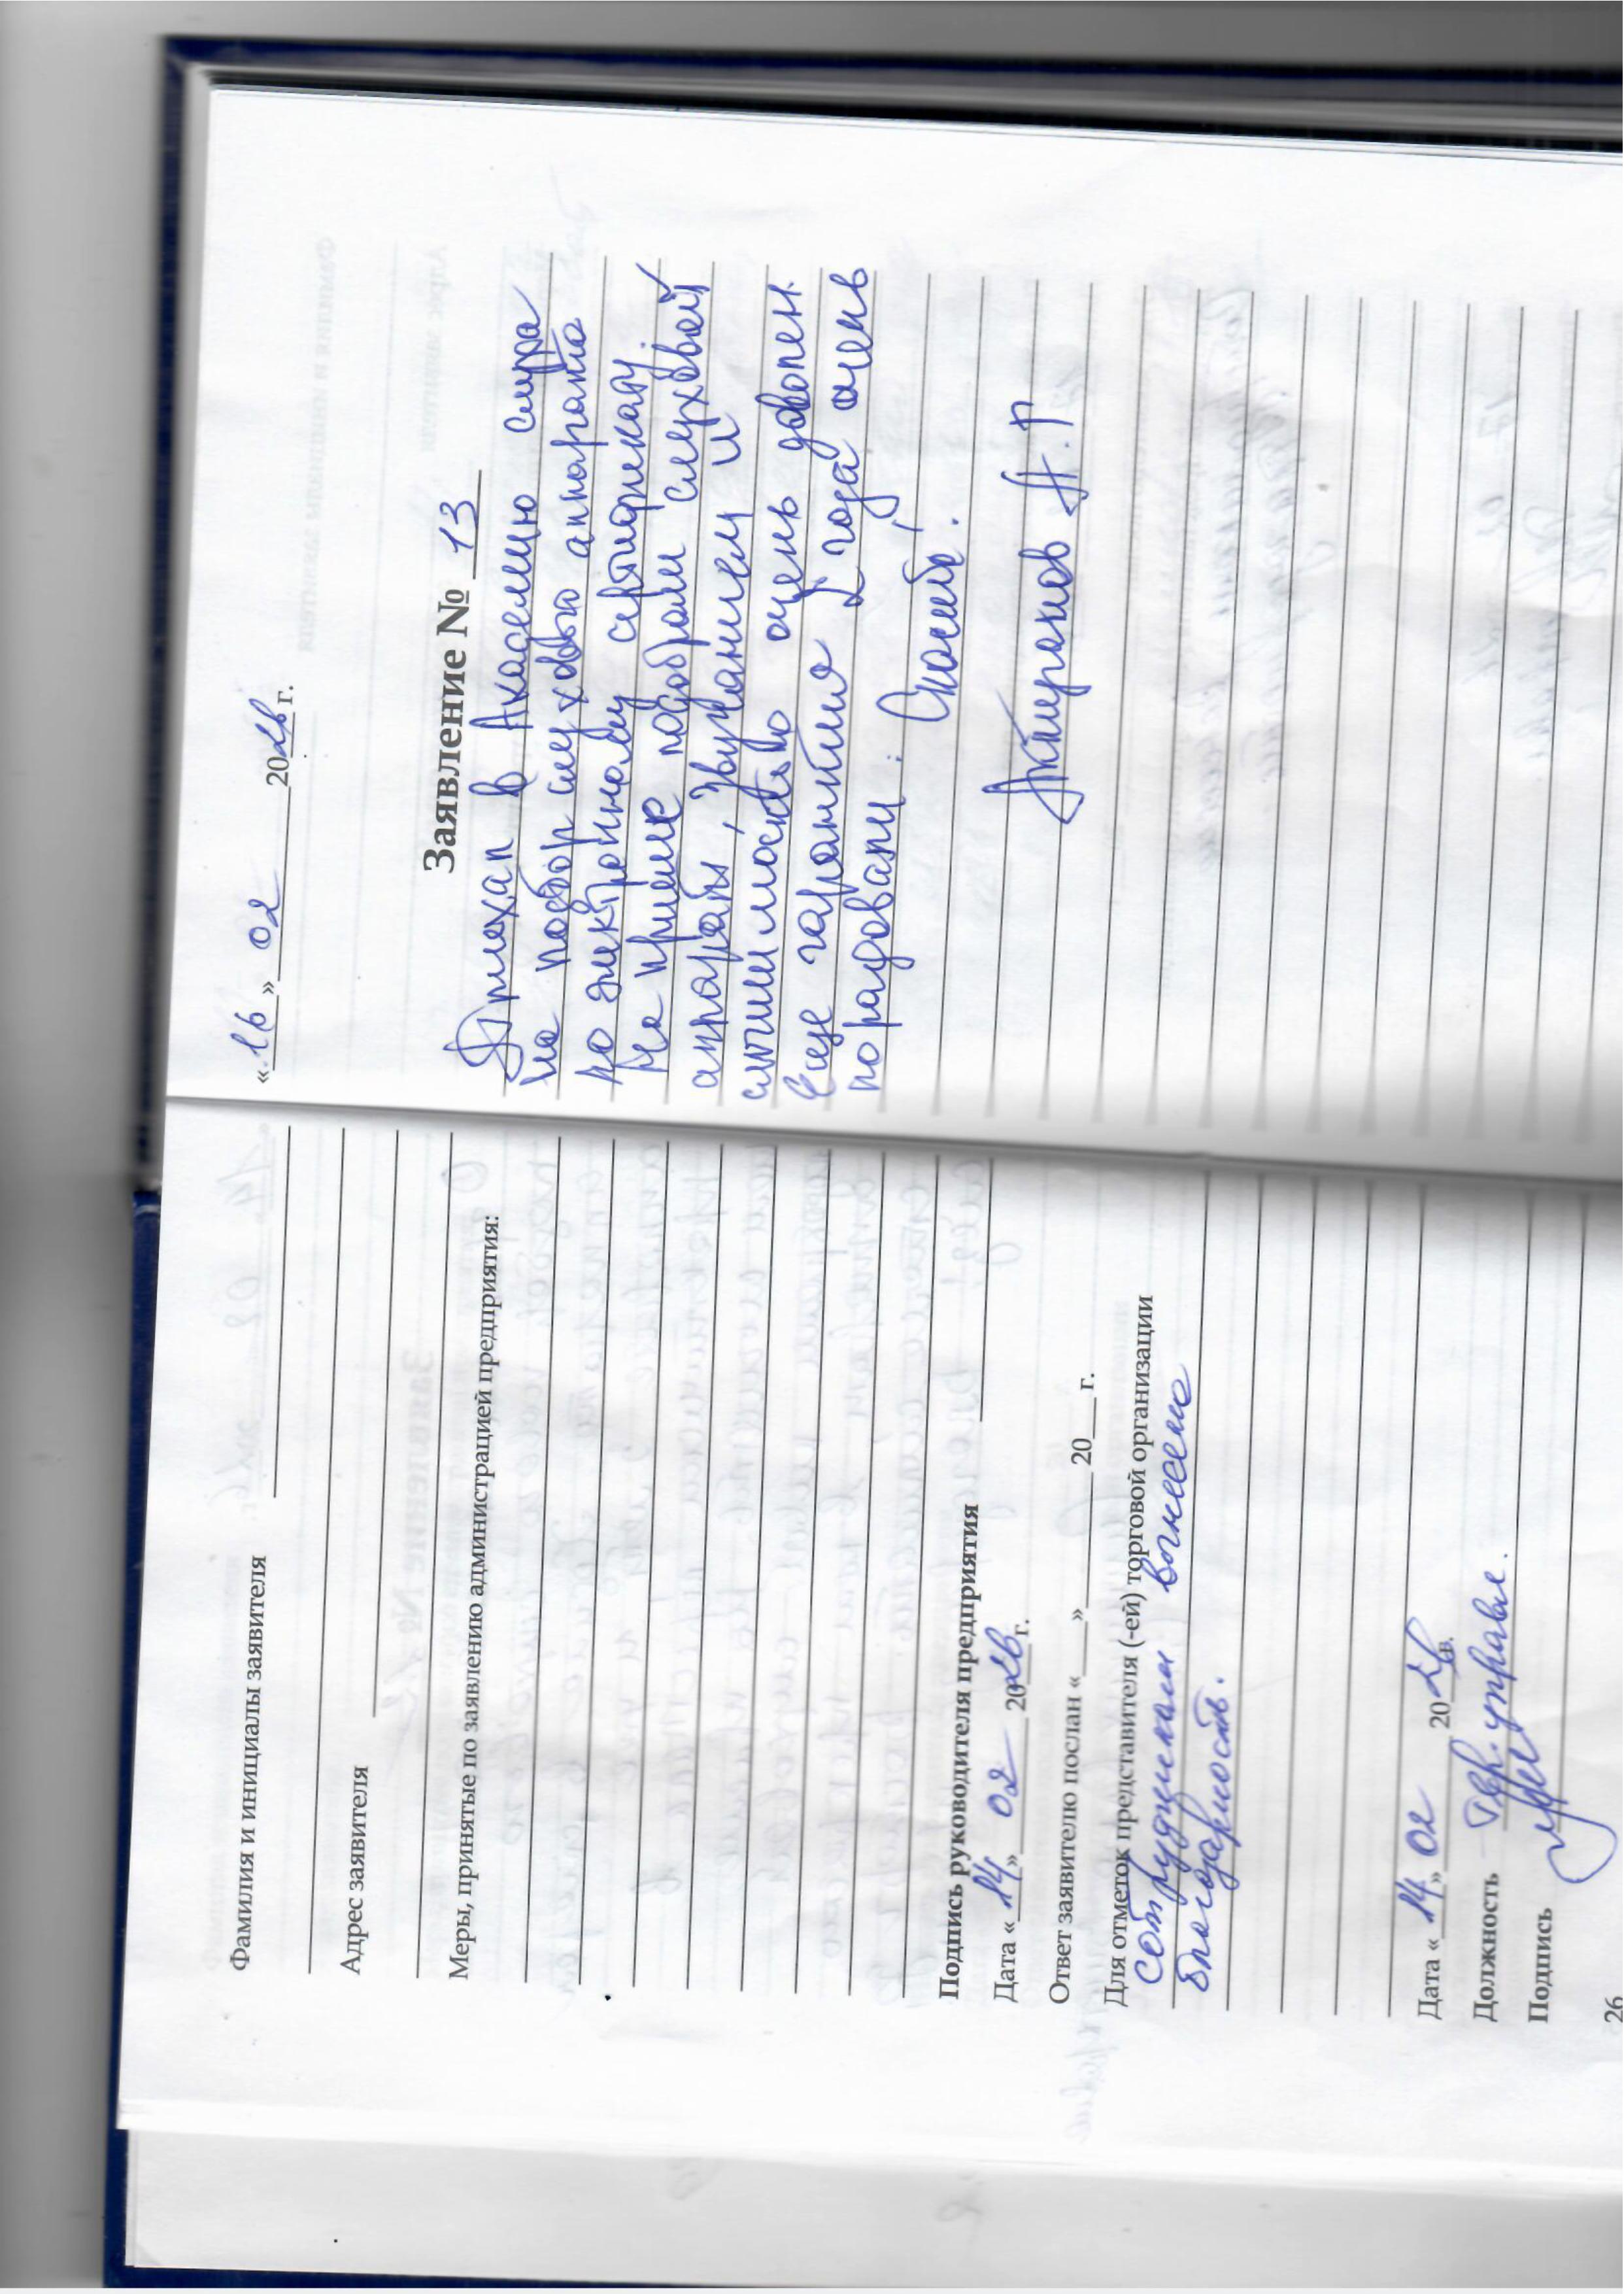 Фамилия и инициалы заявителя
Адрес заявителя
Меры, принятые по заявлению администрацией предприятия:
Подпись руководителя предприятия
Дата « 14 » 02 2026 г.
Ответ заявителю послан « » 20 г.
Для отметок представителя (-ей) торговой организации
сотрудникам вынесена
благодарность.
Дата « 14 » 02 2026 г.
Должность Ген. управл.
Подпись
26
« 16 » 02 2026 г.
Заявление № 13
Приехал в Академию слуха
на подбор слуховых аппарата
по электронному сертификату.
На приеме подобрали слуховой
аппараты, звучанием и
слышимостью очень доволен.
Еще гарантия 2 года очень
порадовали. Спасибо.
А.Г